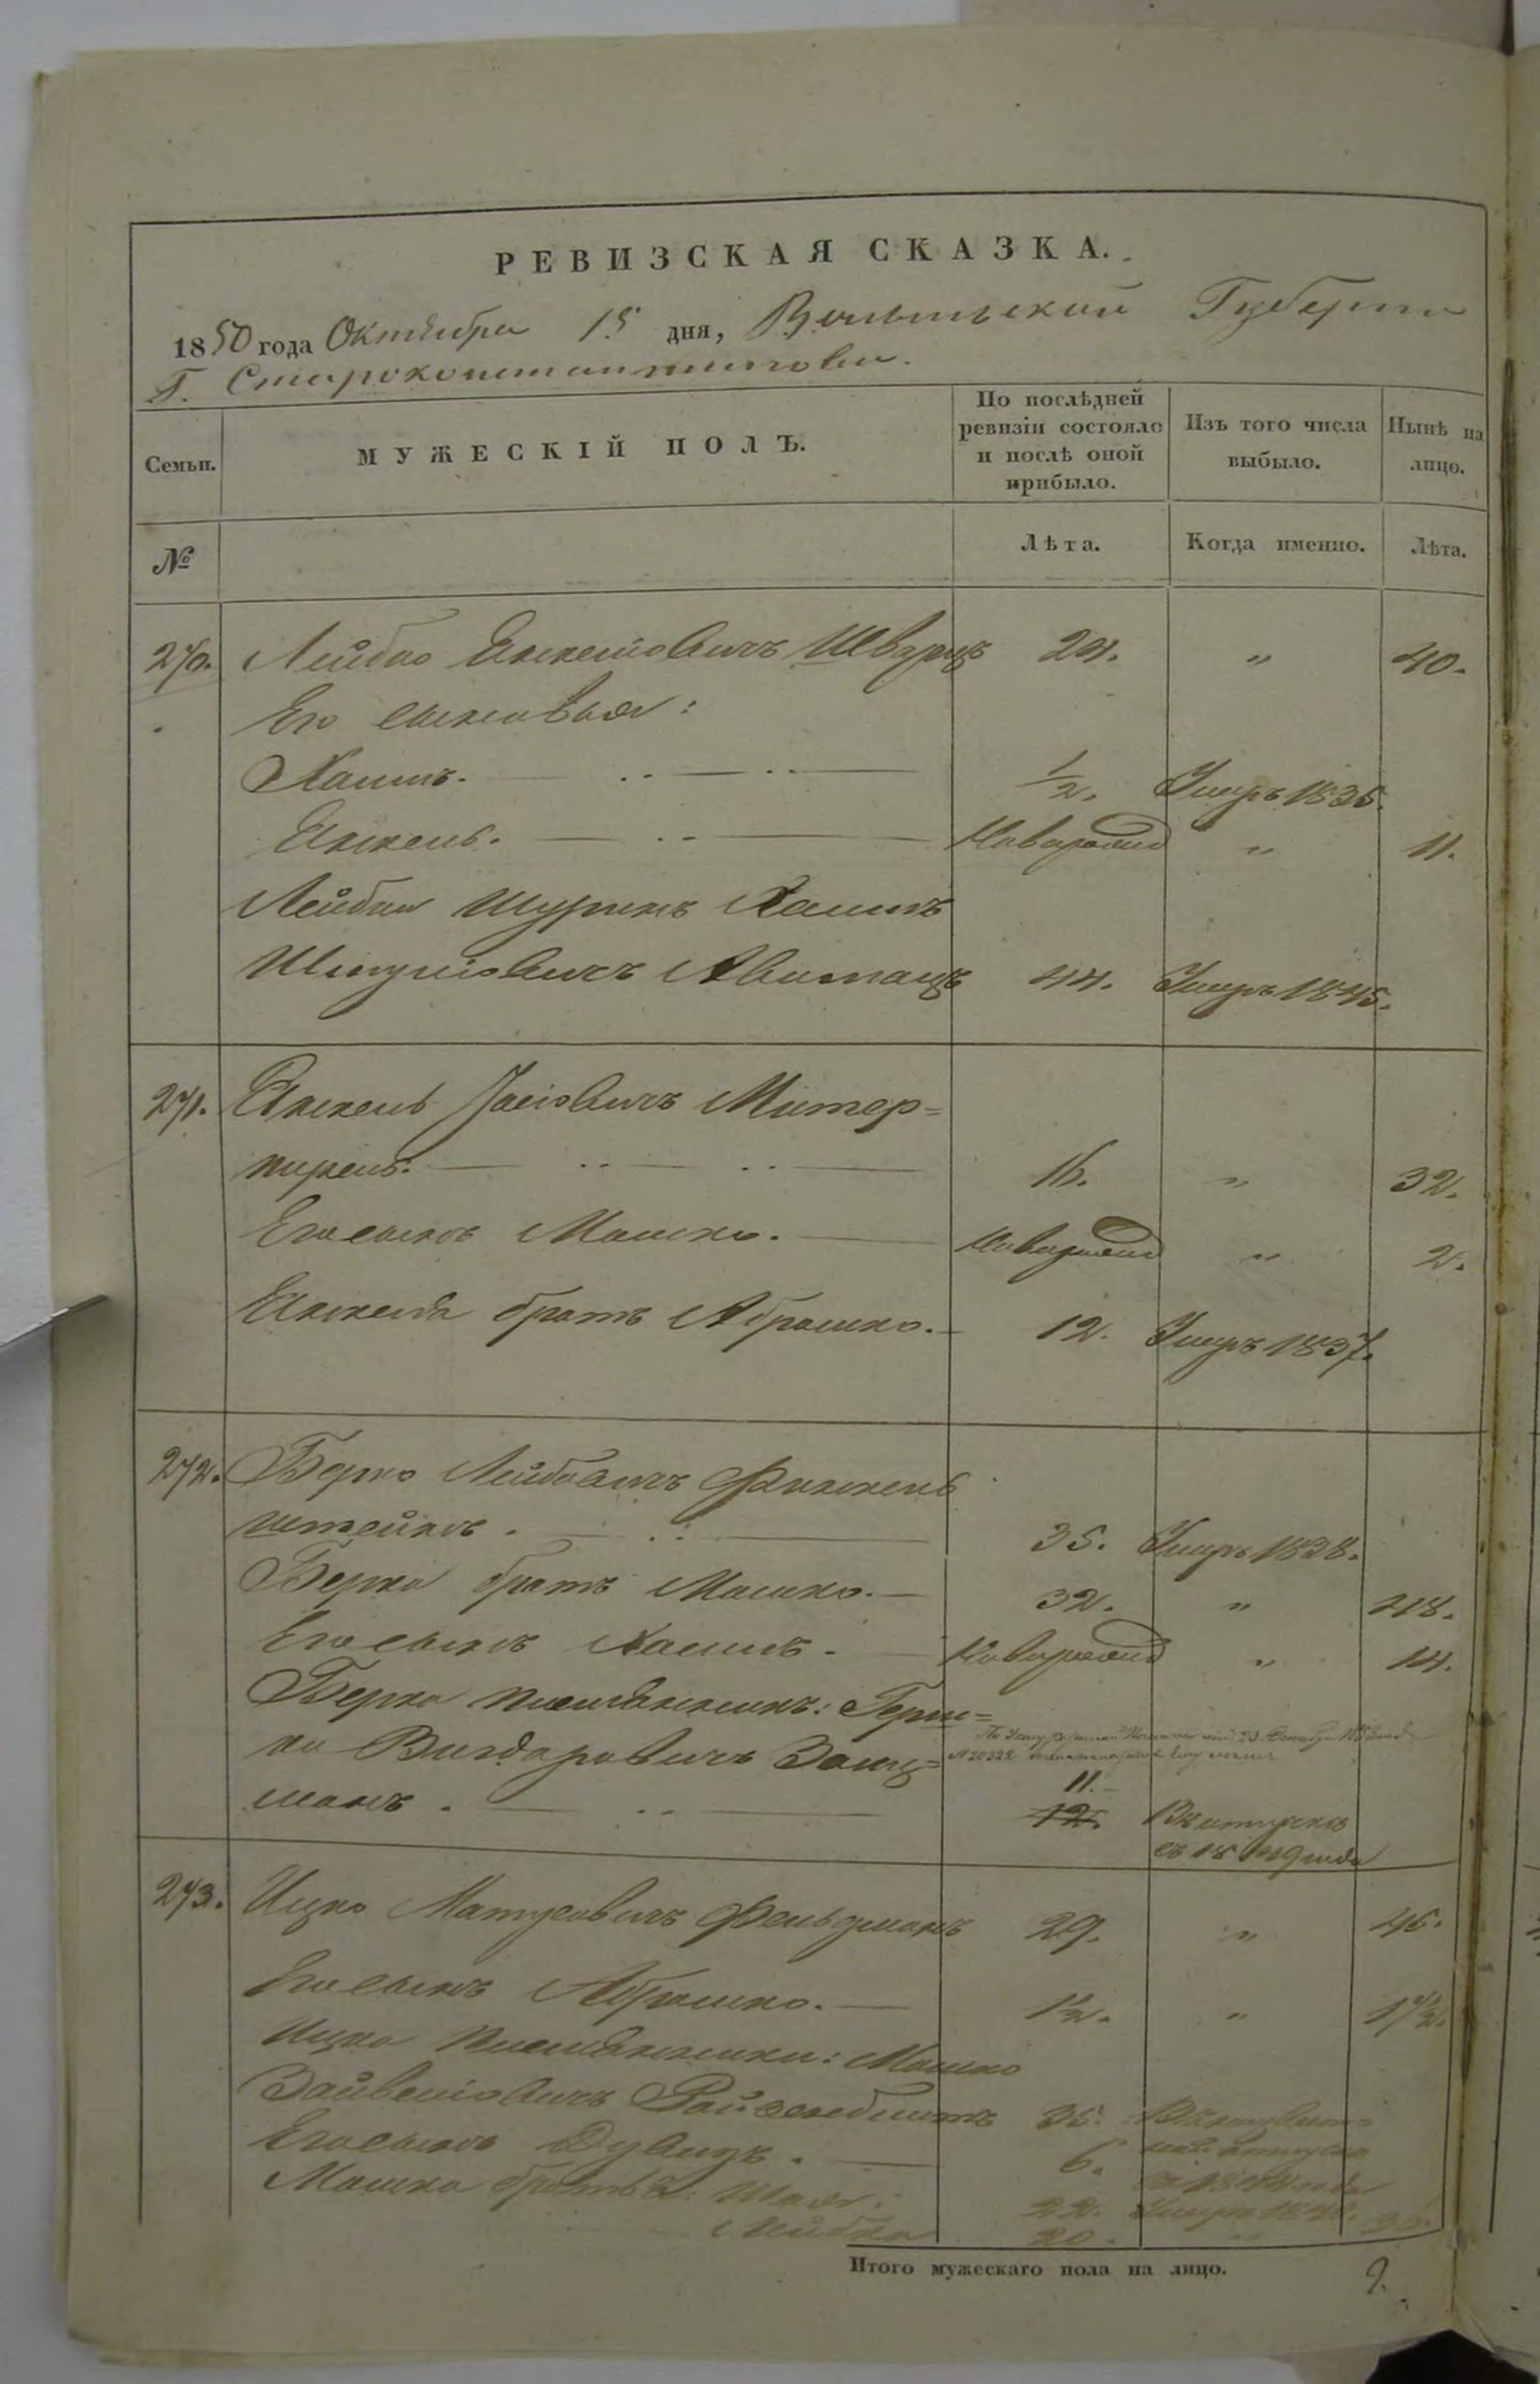 РЕВИЗСКАЯ СКАЗКА.
1850 года Октября 15 дня, Волынской Губернии
Г. Староконстантинова.
Семьи.
МУЖЕСКІЙ ПОЛЪ.
По послѣдней ревизіи состояло и послѣ оной прибыло.
Изъ того числа выбыло.
Нынѣ на лицо.
№
Лѣта.
Когда именно.
Лѣта.
270. Лейбко Янкелiовичъ Шварцъ 24. " 40.
Его сыновья:
Хаимъ. 1/2. Умеръ 1835.
Янкель. Новорожд " 11.
Лейбки Шуринъ Хаимъ
Шмулiовичъ 44. Умеръ 1845.
271. Янкель Iосiовичъ Митер=
16. " 32.
Его сынъ Мошко. Новорожд " 2.
Янкеля братъ Абрашко. 12. Умеръ 1837.
272. Берко Лейбовичъ Финкель
штейнъ. 35. Умеръ 1838.
Берка братъ Мошко. 32. " 48.
Его сынъ Хаимъ. Новорожд " 14.
Берка племянникъ: Герш=
ко Вигдоровичъ Залц=
№20322
манъ. 11. 12. Въ
съ 1849 года
273. Ицко Матусовичъ Фельдманъ 29. " 45.
Его сынъ Абрашко. 1 1/2. " 17 1/2.
Ицка племянники: Мошко
Зайвелiовичъ 35.
Его сынъ Дувидъ. 6.
Мошка братья: Шая: 22. Умеръ
Лейбка 20.
Итого мужескаго пола на лицо. 9.